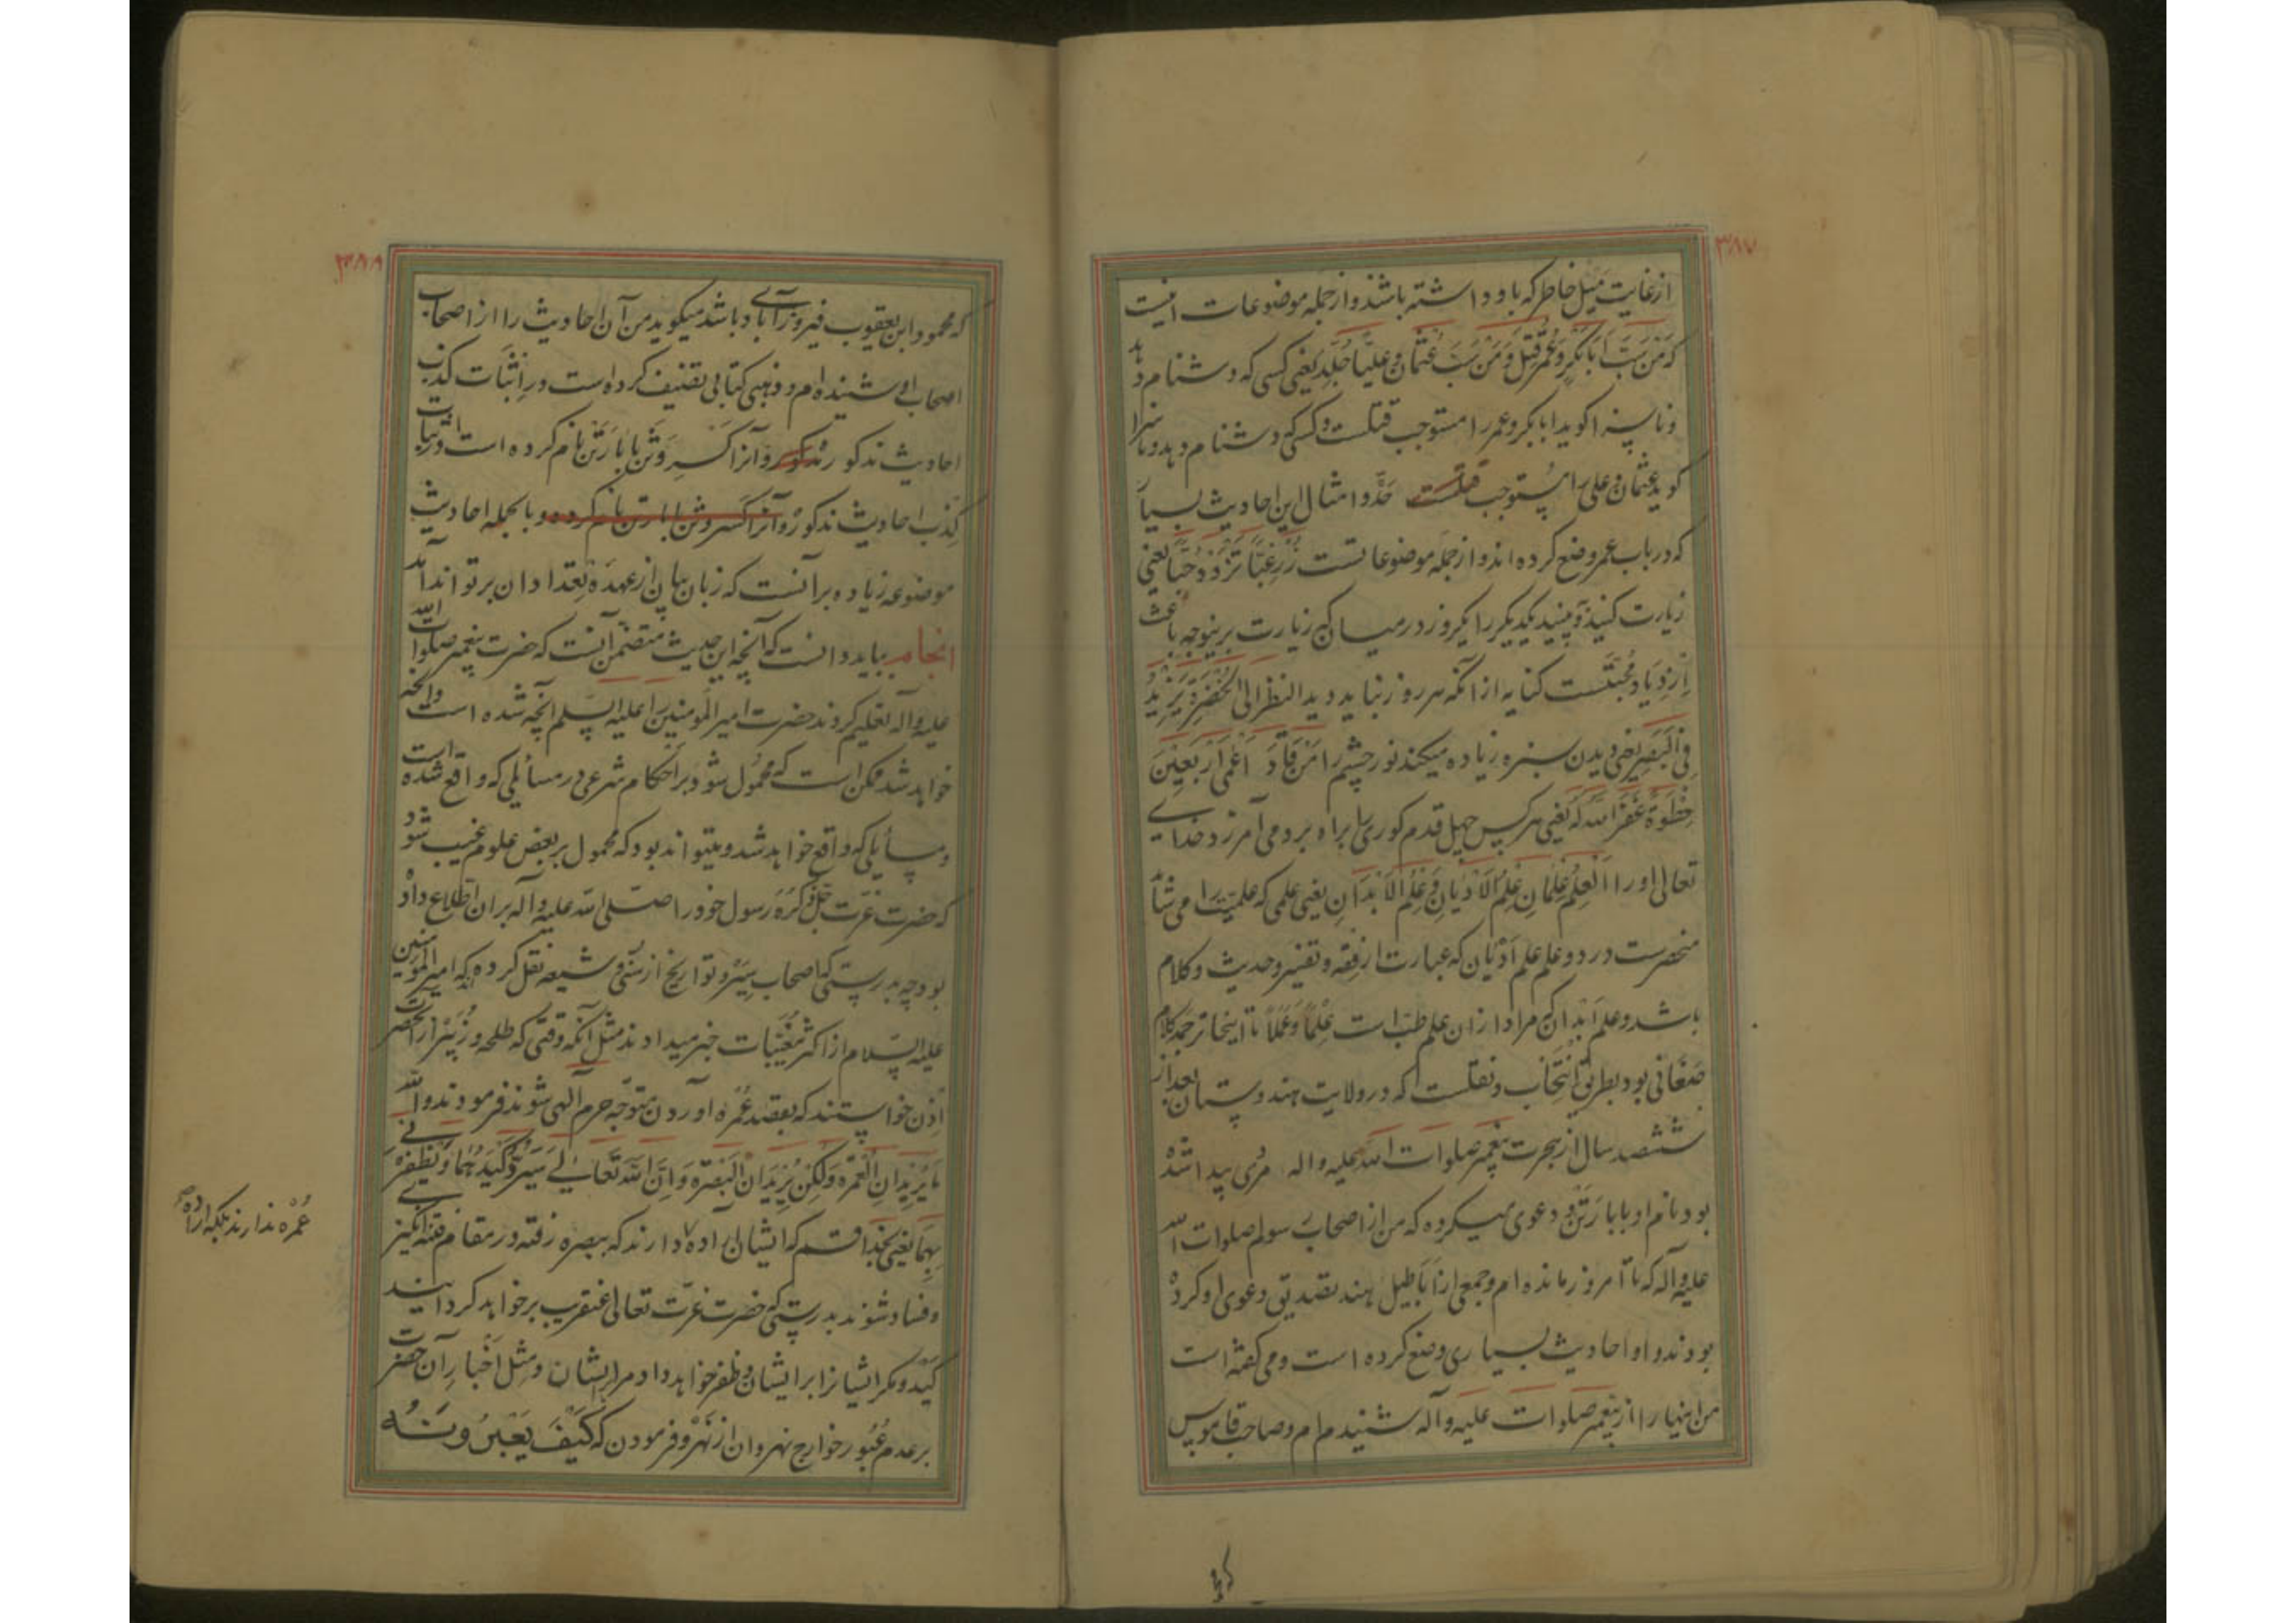 ۳۸۷
از غایت میل خاطر که باو داشته باشند و از جمله موضوعات اینست
که مَنْ سَبَّ اَبابَکْرٍ وَعُمَرَ قُتِلَ وَمَنْ سَبَّ عُثْمانَ وَعَلِیّاً جُلِدَ یعنی کسی که دشنام دهد
و ناسزا کوید ابابکر و عمر را مستوجب قتلست و کسی که دشنام دهد و ناسزا
کوید عثمان و علی را مستوجب قتلست حَدّ و امثال این احادیث بسیار
که در باب عمر وضع کرده اند و از جمله موضوعاتست زُرْ غِبّاً تَزْدَدْ حُبّاً یعنی
زیارت کنید و ببینید یکدیکر را یکروز در میان که زیارت برینوجه باعث
اِزْدِیاد محبّتست کنایه از آنکه هر روز نباید دید النظر الی الخُضْرَةِ یَزِیدُ
فِی الْبَصَرِ یعنی دیدن سبزه زیاده میکند نور چشم را مَنْ قَادَ اَعْمٰی اَرْبَعِینَ
خُطْوَةً غَفَرَ اللهُ لَهُ یعنی هر کس چهل قدم کوری را براه برد می آمرزد خدای
تعالی او را اَلْعِلْمُ عِلْمانِ عِلْمُ الْاَدْیانِ وَعِلْمُ الْاَبْدَانِ یعنی علمی که علمیّت را می شاید
منحصرست در دو علم علم اَدْیان که عبارت از فقه و تفسیر و حدیث و کلام
باشد و علم اَبْدان که مراد از ان علم طبّ است عِلْماً وَعَمَلاً تا اینجا ترجمه کلام
صَغانی بود بطریق انتخاب و نقلست که در ولایت هندوستان بعد از
ششصد سال از هجرت پیغمبر صلوات الله علیه واله مردی پیدا شده
بود نام او بابا رَتَن و دعوی میکرده که من از اصحاب رسولم صلوات الله
علیه وآله که تا امروز مانده ام و جمعی از اَباطیل هند تصدیق دعوی او کرده
بودند و او احادیث بسیاری وضع کرده است و می گفته است
من اینها را از پیغمبر صلوات علیه وآله شنیده ام و صاحب قاموس
که
۳۸۸
که محمود ابن یعقوب فیروزآبادی باشد میکوید من آن احادیث را از اصحاب
اصحاب او شنیده ام و ذهبی کتابی تصنیف کرده است در اثبات کذب
احادیث مذکور و آنرا کَسْرِ وَثَن بابا رَتَن نام کرده است در اثبات
کذب احادیث مذکور و آنرا کسر وثن بابا رتن نام کرده و بالجمله احادیث
موضوعه زیاده بر آنست که زبان بیان از عهدهٔ تعداد ان برتواند آمد
انجام بباید دانست که آنچه این حدیث متضمّن آنست که حضرت پیغمبر صلوات الله
علیه وآله تعلیم کردند حضرت امیر المومنین را علیه السلم آنچه شده است وانچه
خواهد شد ممکن است که محمول شود بر احکام شرعی در مسائلی که واقع شده است
و مسائلی که واقع خواهد شد و میتواند بود که محمول بر بعض علوم غیب شود
که حضرت عزّت جلّ ذکره رسول خود را صلّی الله علیه وآله بران اطّلاع داده
بود چه بدرستی که اصحاب سِیَر و تواریخ از سنّی و شیعه نقل کرده اند که امیر المومنین
علیه السّلام از اکثر مُغَیَّبات خبر میدادند مثل آنکه وقتی که طلحه و زُبَیْر از آنحضرت
اِذْن خواستند که بقصد عُمْره آوردن متوجّه حرم آلهی شوند فرمودند والله
مَا یُرِیْدانِ الْعُمْرَةَ وَلٰکِنْ یُرِیْدَانِ الْبَصْرَةَ وَاِنَّ اللهَ تَعَالٰی سَیَرُدُّ کَیْدَهُمَا وَیُظْفِرُنِی
بِهِمَا یعنی بخدا قسم که ایشان ارادهٔ دارند که ببصره رفته در مقام فتنه انکیزی
و فساد شوند بدرستی که حضرت عزّت تعالی عنقریب برخواهد کردانید
کَیْد و مکر ایشانرا بر ایشان و ظفر خواهد داد مرا بر ایشان و مثل اَخْبارِ آن حضرت
بر عدم عُبُور خوارج نهروان از نَهْر و فرمودن که کَیْفَ یَعْبُرُونَهُ
عُمْره ندارند بلکه اراده